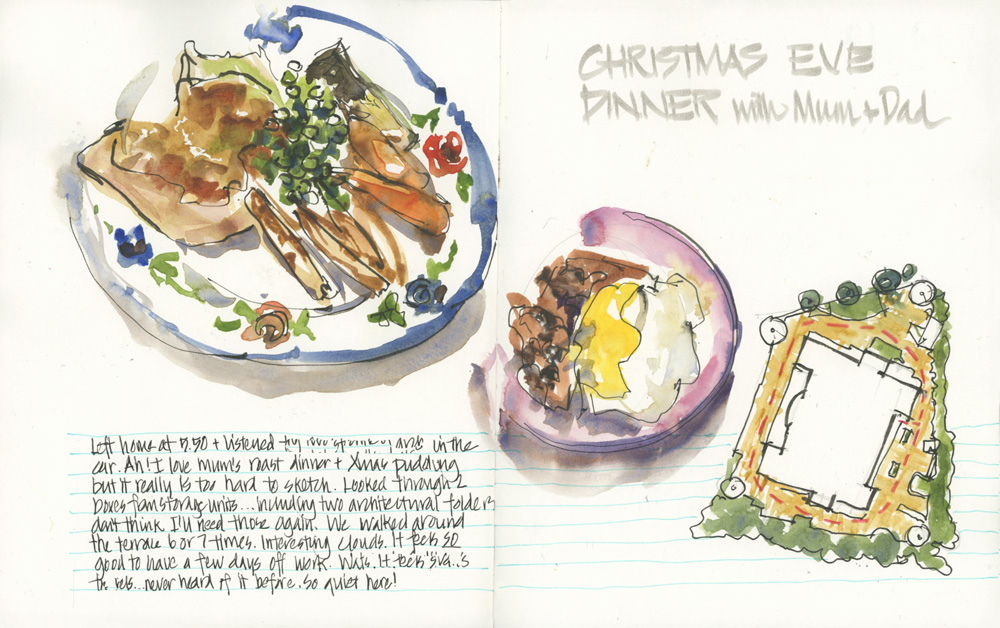 CHRISTMAS EVE
DINNER with Mum + Dad
Left home at 5.50 + listened in the
car. Ah! I love mum's roast dinner + Xmas pudding
but it really is too hard to sketch. Looked through 2
boxes from storage units... including two architectural folders
don't think I'll need those again. We walked around
the terrace 6 or 7 times. Interesting clouds. It feels so
good to have a few days off work. It feels
the ... never heard of it before. So quiet here!